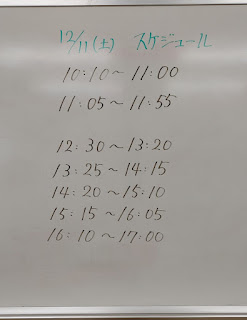 12/11(土) スケジュール
10:10〜11:00
11:05〜11:55
12:30〜13:20
13:25〜14:15
14:20〜15:10
15:15〜16:05
16:10〜17:00